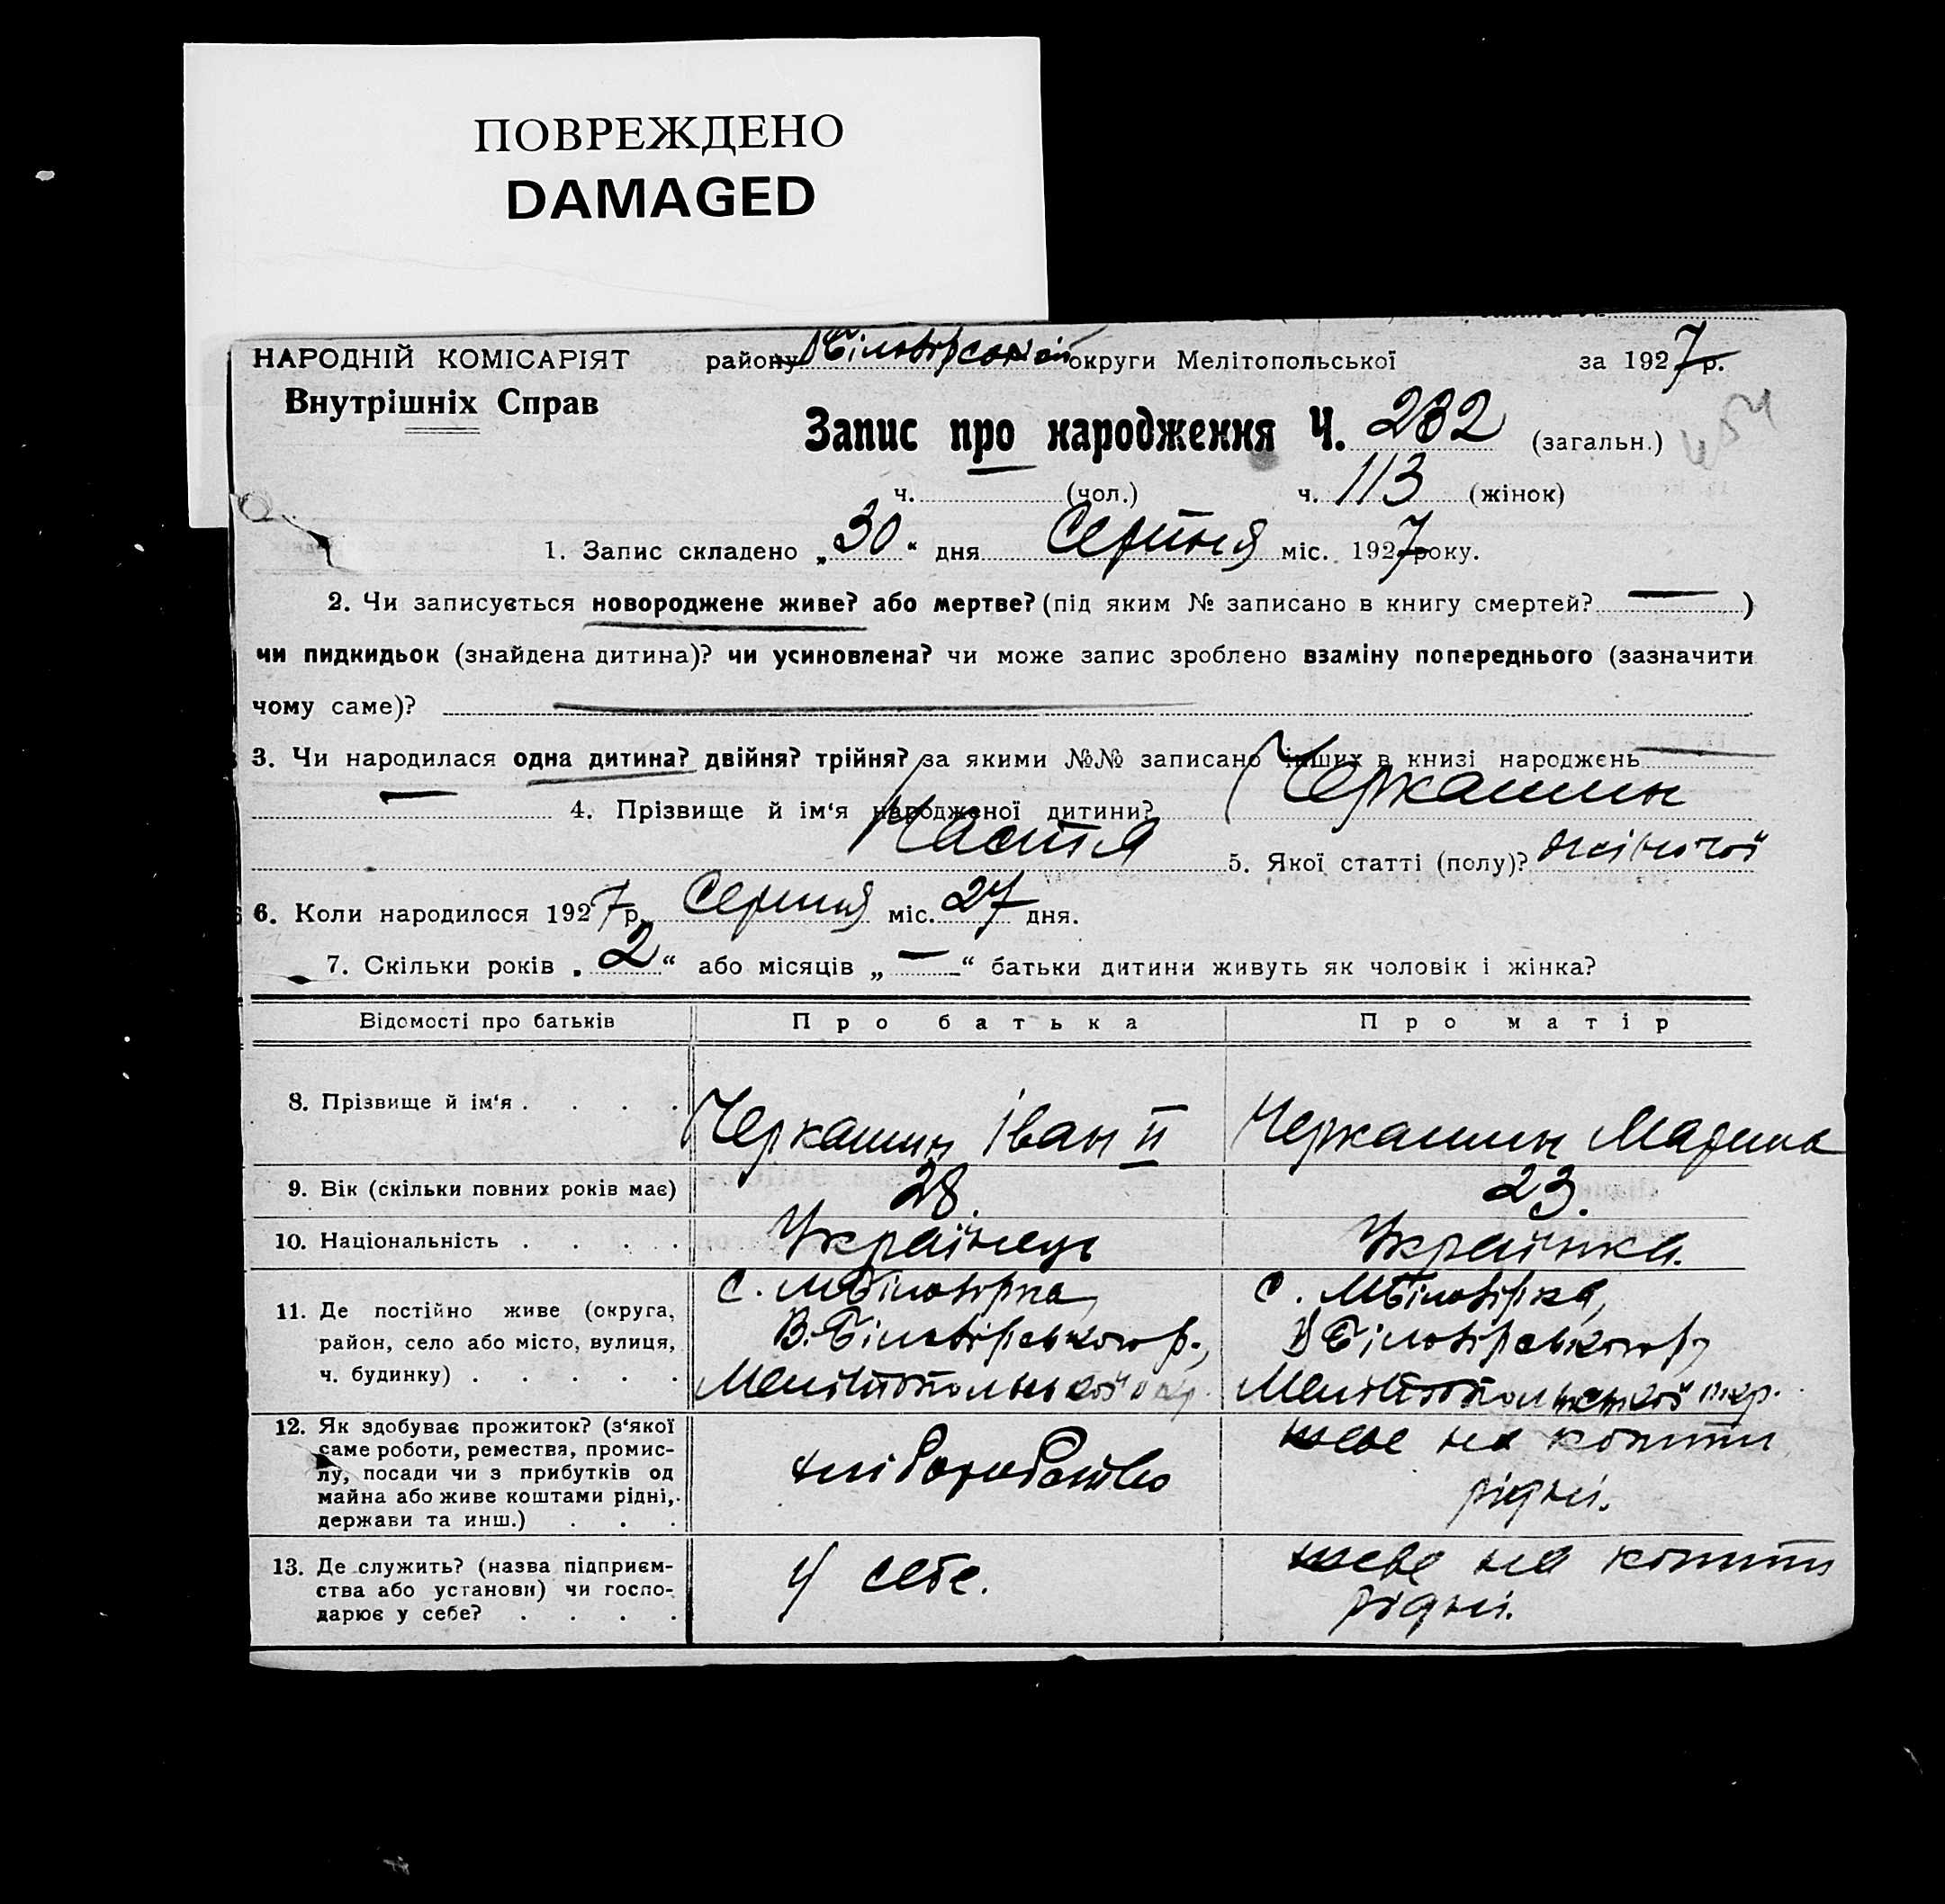 ПОВРЕЖДЕНО
DAMAGED
НАРОДНІЙ КОМІСАРІЯТ району округи Мелітопольської за 1927 р.
Внутрішніх Справ
Запис про народження Ч. 232 (загальн.)
ч. (чол.) ч. 113 (жінок)
1. Запис складено „30“ дня Серпня міс. 1927 року.
2. Чи записується новороджене живе? або мертве? (під яким № записано в книгу смертей? — )
чи пидкидьок (знайдена дитина)? чи усиновлена? чи може запис зроблено взаміну попереднього (зазначити
чому саме)?
3. Чи народилася одна дитина? двійня? трійня? за якими №№ записано інших в книзі народжень —
— 4. Прізвище й ім‘я народженої дитини? Черкашин
Настя 5. Якої статті (полу)? жіночої
6. Коли народилося 1927 р. Серпня міс. 27 дня.
7. Скільки років „2“ або місяців „—“ батьки дитини живуть як чоловік і жінка?
Відомості про батьків Про батька Про матір
8. Прізвище й ім‘я . . . . Черкашин Іван ІІ Черкашин Марина
9. Вік (скільки повних років має) 28. 23.
10. Національність . . . . Українець Українка.
11. Де постійно живе (округа, с. МБіловірка, с. МБіловірка,
район, село або місто, вулиця, В.-Біловірського р., В Біловірського р,
ч. будинку) . . . . . Мелітопольської окр. Мелітопольської окр.
12. Як здобуває прожиток? (з‘якої саме роботи, ремества, промис-
лу, посади чи з прибутків од
майна або живе коштами рідні,
держави та инш.) . . . хліборобство живе на кошти
рідні.
13. Де служить? (назва підприєм-
ства або установи) чи госпо-
дарює у себе? . . . . У себе. живе на кошти
рідні.